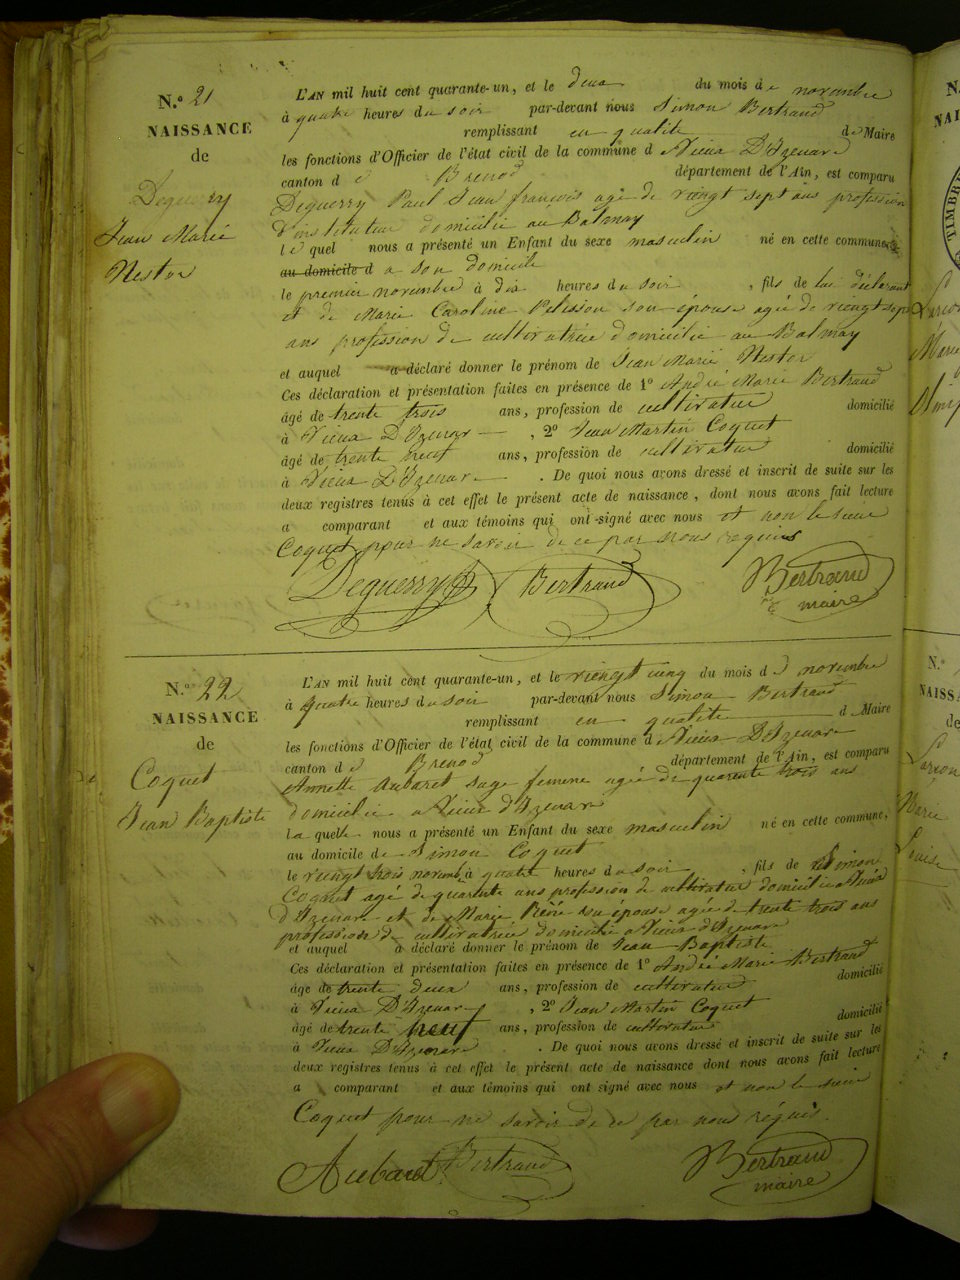 N.º 21
NAISSANCE
de
Deguerry
Jean Marie
Nestor
L'AN mil huit cent quarante-un, et le deux du mois de novembre
à quatre heures du soir par-devant nous Simon Bertrand
remplissant en qualité de Maire
les fonctions d'Officier de l'état civil de la commune d Vieux D'Izenave
canton d e Brenod département de l'Ain, est comparu
Deguerry Paul Jean françois agé de vingt sept ans profession
d'instituteur domicilié au Balmay
le quel nous a présenté un Enfant du sexe masculin né en cette commune
au domicile d a son domicile
le premier novembre à dix heures du soir , fils de lui déclarant
et de Marie Caroline Pelisson son épouse agée de vingt sept
ans profession de cultivatrice domicilié au Balmay
et auquel a déclaré donner le prénom de Jean Marie Nestor
Ces déclaration et présentation faites en présence de 1º André Marie Bertrand
âgé de trente trois ans, profession de cultivateur domicilié
à Vieux D'Izenave , 2º Jean Martin Coquet
âgé de trente neuf ans, profession de cultivateur domicilié
à Vieux D'Izenave . De quoi nous avons dressé et inscrit de suite sur les
deux registres tenus à cet effet le présent acte de naissance, dont nous avons fait lecture
a comparant et aux témoins qui ont signé avec nous et non le sieur
Coquet pour ne savoir de ce par nous requis
Deguerry Bertrand Bertrand
maire
N.º 22
NAISSANCE
de
Coquet
Jean Baptiste
L'AN mil huit cent quarante-un, et le vingt cinq du mois d e novembre
à quatre heures du soir par-devant nous Simon Bertrand
remplissant en qualité d Maire
les fonctions d'Officier de l'état civil de la commune d Vieux D'Izenave
canton d e Brenod département de l'Ain, est comparu
Annette Aubaret sage femme agée de quarente trois ans
domicilié a Vieux d'Izenave
la quelle nous a présenté un Enfant du sexe masculin né en cette commune,
au domicile de Simon Coquet
le vingt trois novemb à quatre heures du soir , fils de Simon
Coquet agé de quarente ans profession de cultivateur domicilié a Vieux
d'Izenave et de Marie sa épouse agée de trente trois ans
profession de cultivatrice domicilié a Vieux d'Izenave
et auquel a déclaré donner le prénom de Jean Baptiste
Ces déclaration et présentation faites en présence de 1º André Marie Bertrand
âgé de trente deux ans, profession de cultivateur domicilié
à Vieux D'Izenave , 2º Jean Martin Coquet
âgé de trente neuf ans, profession de cultivateur domicilié
à Vieux D'Izenave . De quoi nous avons dressé et inscrit de suite sur les
deux registres tenus à cet effet le présent acte de naissance dont nous avons fait lecture
a comparant et aux témoins qui ont signé avec nous et non le sieur
Coquet pour ne savoir de ce par nous réquis
Aubaret Bertrand Bertrand
maire
TIMBRE
Marie
Louise